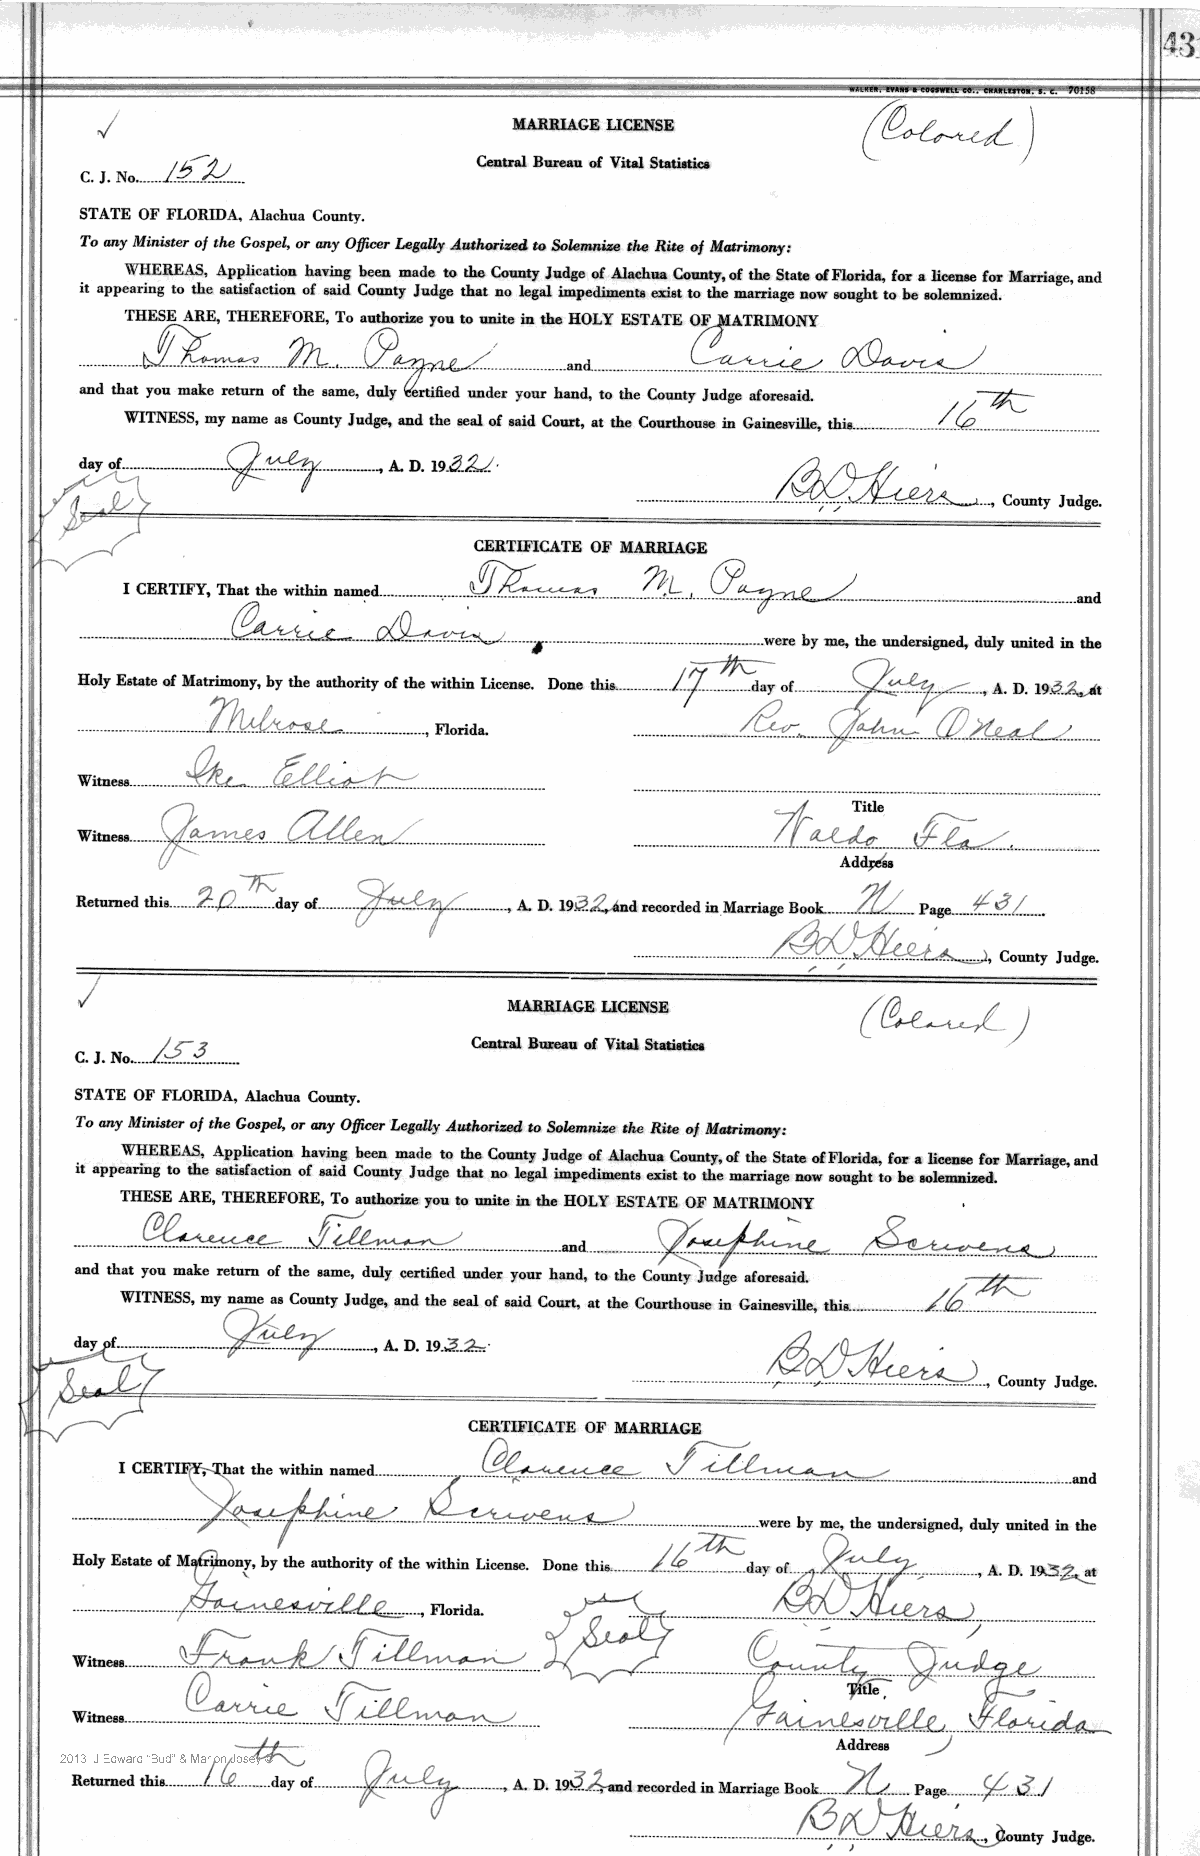 43
WALKER, EVANS & COGSWELL CO., CHARLESTON, S. C. 70158
MARRIAGE LICENSE
(Colored)
Central Bureau of Vital Statistics
C. J. No. 152
STATE OF FLORIDA, Alachua County.
To any Minister of the Gospel, or any Officer Legally Authorized to Solemnize the Rite of Matrimony:
WHEREAS, Application having been made to the County Judge of Alachua County, of the State of Florida, for a license for Marriage, and
it appearing to the satisfaction of said County Judge that no legal impediments exist to the marriage now sought to be solemnized.
THESE ARE, THEREFORE, To authorize you to unite in the HOLY ESTATE OF MATRIMONY
Thomas M. Payne and Carrie Davis
and that you make return of the same, duly certified under your hand, to the County Judge aforesaid.
WITNESS, my name as County Judge, and the seal of said Court, at the Courthouse in Gainesville, this 16th
day of July, A. D. 1932.
Seal
B D Hiers, County Judge.
CERTIFICATE OF MARRIAGE
I CERTIFY, That the within named Thomas M. Payne and
Carrie Davis were by me, the undersigned, duly united in the
Holy Estate of Matrimony, by the authority of the within License. Done this 17th day of July, A. D. 1932, at
Melrose, Florida. Rev. John O'Neal
Witness Ike Elliot
Title
Witness James Allen Waldo Fla.
Address
Returned this 20th day of July, A. D. 1932, and recorded in Marriage Book N Page 431.
B D Hiers, County Judge.
MARRIAGE LICENSE
(Colored)
Central Bureau of Vital Statistics
C. J. No. 153
STATE OF FLORIDA, Alachua County.
To any Minister of the Gospel, or any Officer Legally Authorized to Solemnize the Rite of Matrimony:
WHEREAS, Application having been made to the County Judge of Alachua County, of the State of Florida, for a license for Marriage, and
it appearing to the satisfaction of said County Judge that no legal impediments exist to the marriage now sought to be solemnized.
THESE ARE, THEREFORE, To authorize you to unite in the HOLY ESTATE OF MATRIMONY
Clarence Tillman and Josephine Scrivens
and that you make return of the same, duly certified under your hand, to the County Judge aforesaid.
WITNESS, my name as County Judge, and the seal of said Court, at the Courthouse in Gainesville, this 16th
day of July, A. D. 1932.
Seal
B D Hiers, County Judge.
CERTIFICATE OF MARRIAGE
I CERTIFY, That the within named Clarence Tillman and
Josephine Scrivens were by me, the undersigned, duly united in the
Holy Estate of Matrimony, by the authority of the within License. Done this 16th day of July, A. D. 1932, at
Gainesville, Florida. B D Hiers,
Seal
Witness Frank Tillman County Judge
Title
Witness Carrie Tillman Gainesville, Florida
Address
2013 J Edward "Bud" & Marion Josey ©
Returned this 16th day of July, A. D. 1932, and recorded in Marriage Book N Page 431
B D Hiers, County Judge.